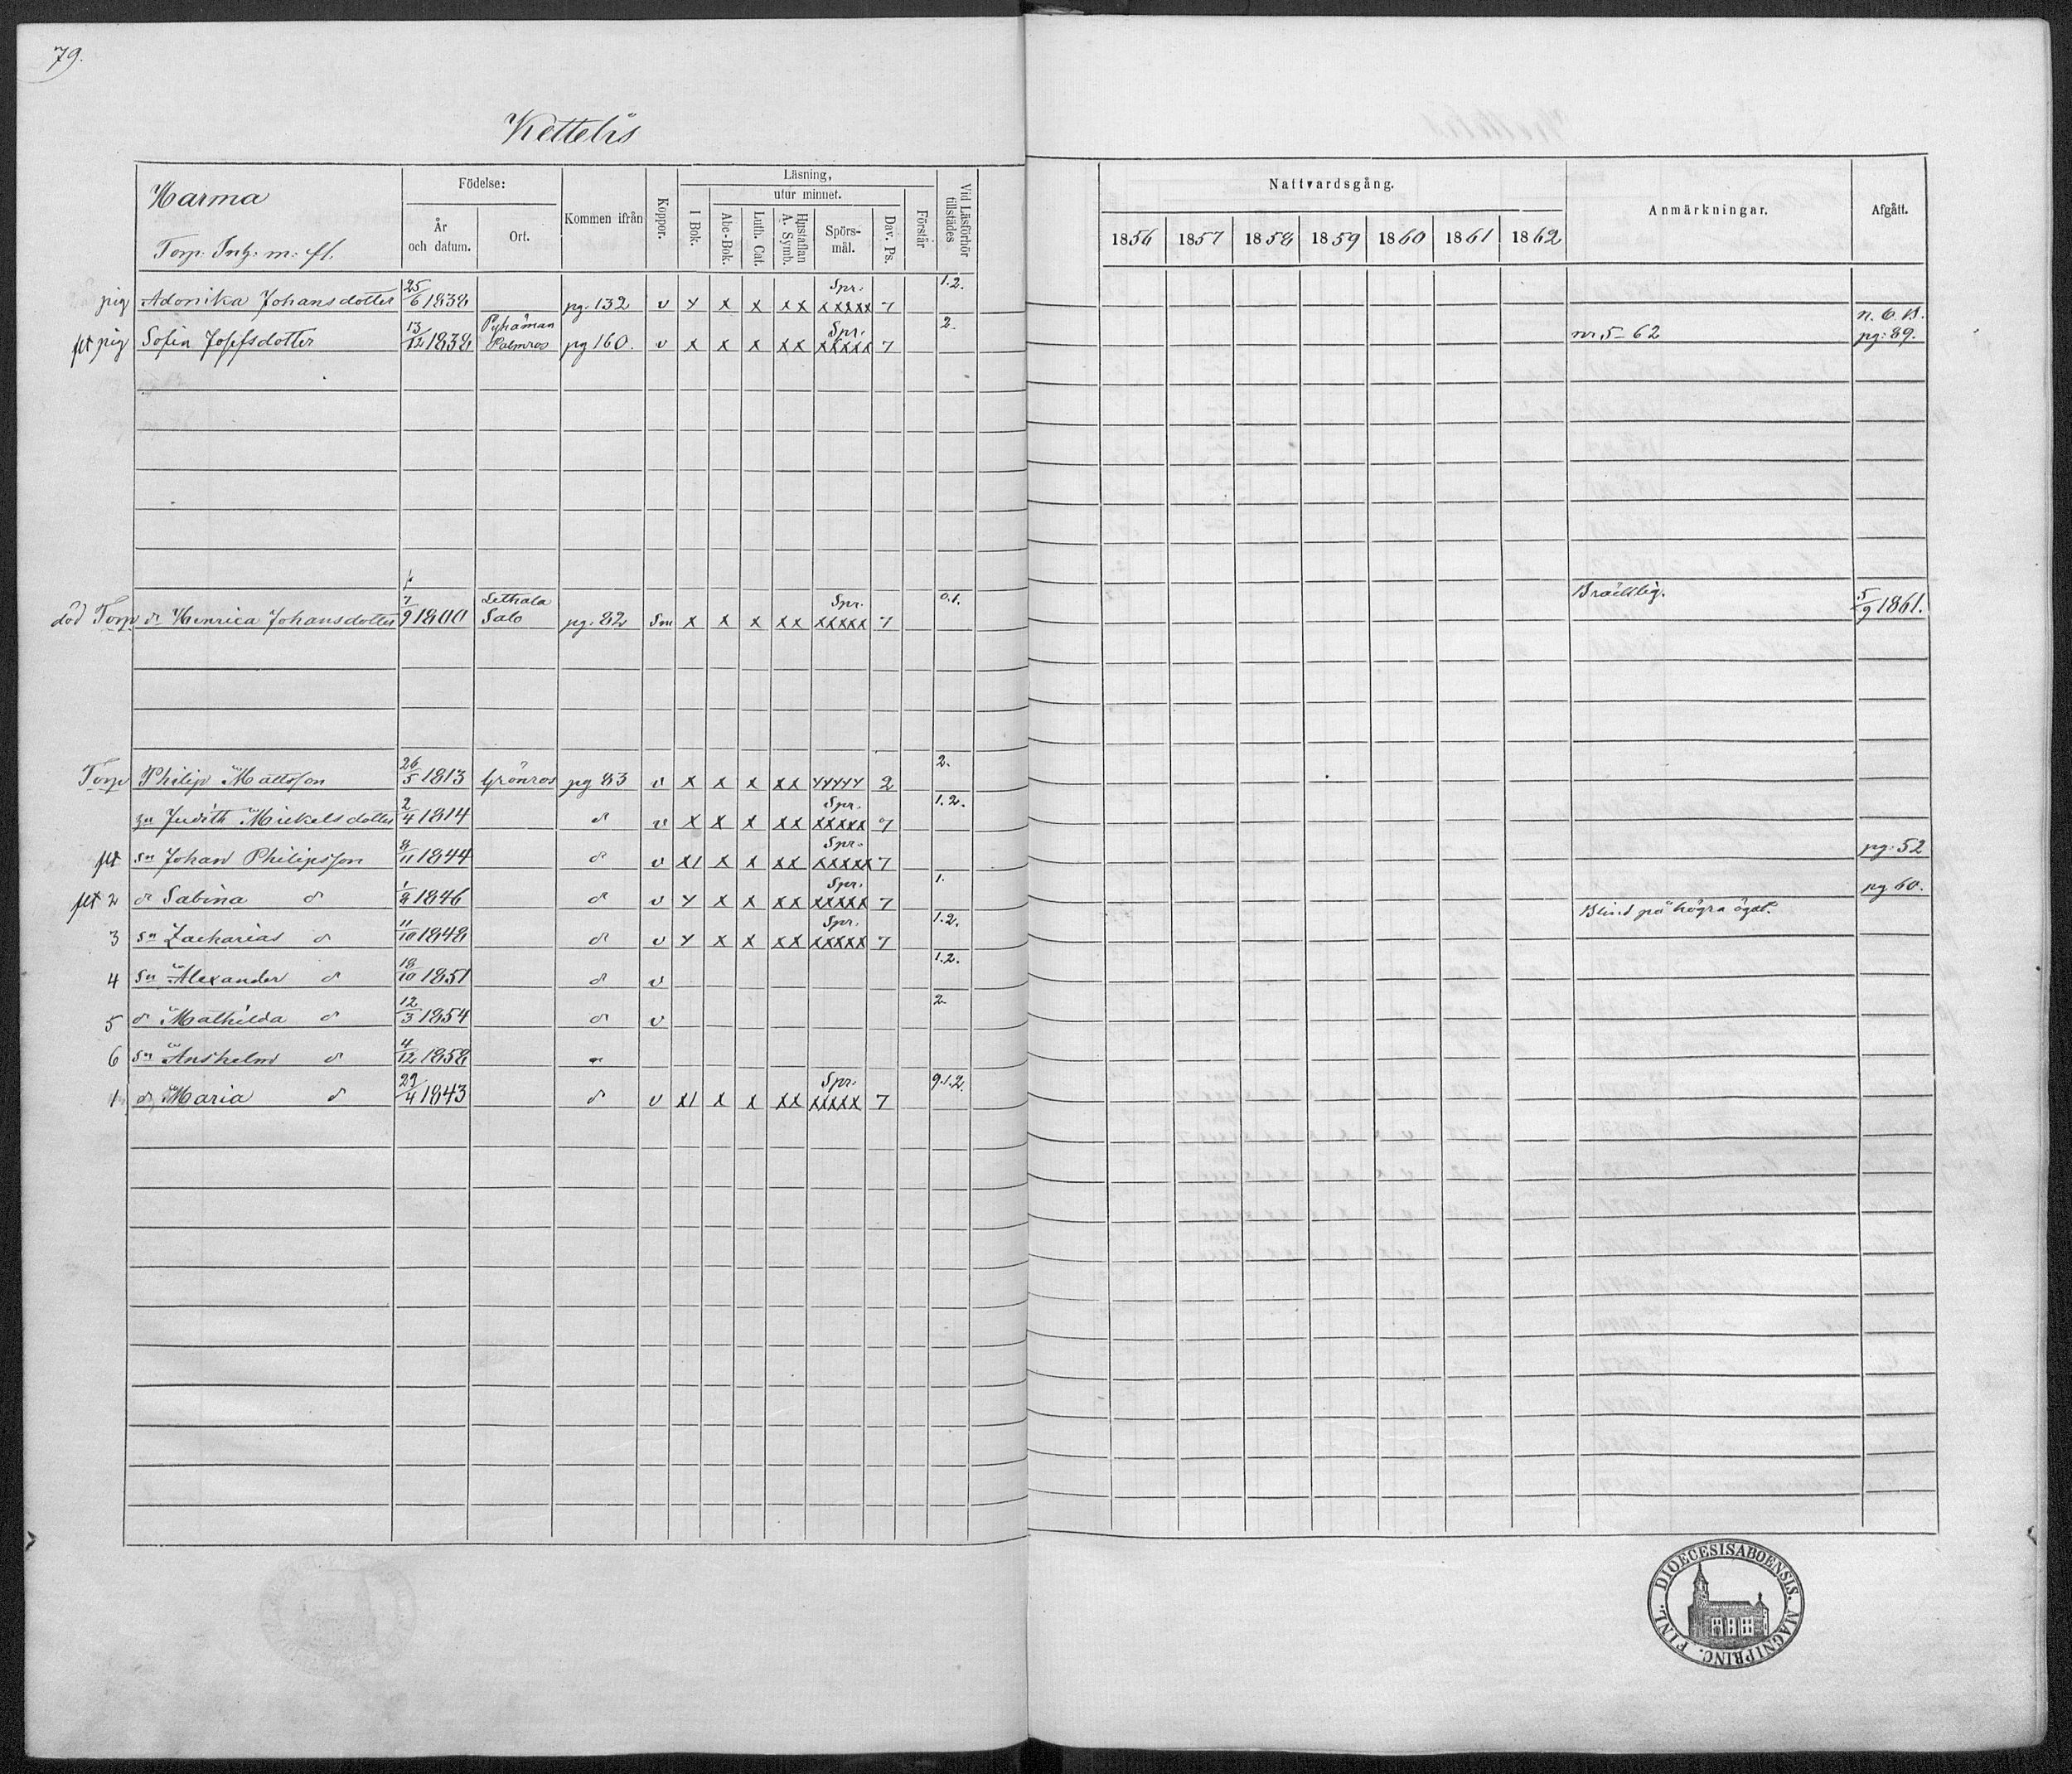 79.
Kettelis
Harma
Torp. Inh: m: fl.
Födelse:
År och datum.
Ort.
Kommen ifrån
Koppor.
Läsning,
utur minnet.
I Bok.
Abc-Bok.
Luth. Cat.
Hustaflan A. Symb.
Spörs-mål.
Dav. Ps.
Förstår
Vid Läsförhör tillstädes
Nattvardsgång.
1856 1857 1858 1859 1860 1861 1862
Anmärkningar.
Afgått.
pig Adonika Johansdotter 25/6 1838 pg. 132 v y x x xx Spr. xxxxx 7 1.2.
flt pig Sofia Josefsdotter 13/12 1838 Pyhämaa pg 160. v x x x xx Spr. xxxxx 7 2. nr 5-62 pg: 89.
död Torp dr Henrica Johansdotter 7/9 1800 Lethala Salo pg. 82 Sm x x x xx Spr. xxxxx 7 0.1. Bräcklig. 5/9 1861.
Torp Philip Mattsson 26/5 1813 Grönros pg 83 v x x x xx yyyyy 2 2.
Judith Mickelsdotter 2/4 1814 d v x x x xx Spr. xxxxx 7 1.2.
flt sn Johan Philipsson 8/11 1844 d v x1 x x xx Spr. xxxxx 7 pg: 52
flt 2 dr Sabina d 1/8 1846 d v y x x xx Spr. xxxxx 7 1. pg 60.
3 sn Zacharias d 11/10 1848 d v y x x xx Spr. xxxxx 7 1.2. Blind på högra ögat.
4 sn Alexander d 18/10 1851 d v 1.2.
5 dr Mathilda d 12/3 1854 d v 2.
6 sn Anshelm d 4/12 1858
1 dr Maria d 29/4 1843 d v x1 x x xx Spr. xxxxx 7 9.1.2.
DIOECESIS ABOENSIS. MAGNI PRINC. FINL.